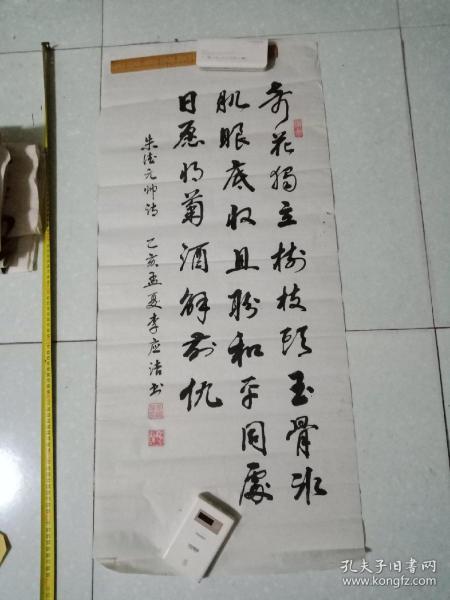 奇花獨立樹枝頭玉骨冰
肌眼底收且盼和平同處
日愿將菊酒解前仇
朱德元帅诗 乙亥孟夏李应洁书
孔夫子旧书网
www.kongfz.com